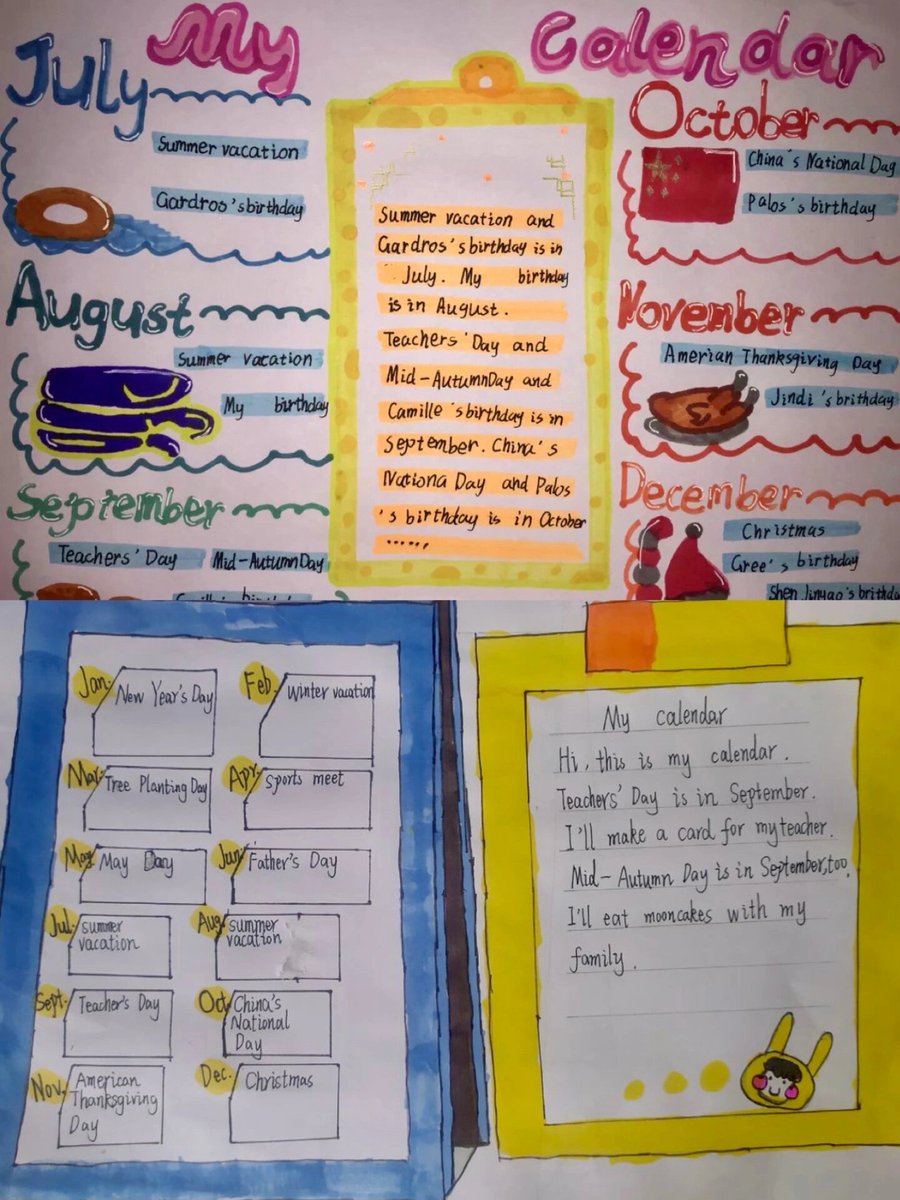 My Calendar
July
Summer vacation
Gardros's birthday
August
Summer vacation
My birthday
September
Teachers' Day
Mid-AutumnDay
Summer vacation and
Gardros's birthday is in
July. My birthday
is in August.
Teachers' Day and
Mid-AutumnDay and
Camille's birthday is in
September. China's
Nationa Day and Palos
's birthday is in October
......
October
China's National Day
Palos's birthday
November
Amerian Thanksgiving Day
Jindi's brithday
December
Christmas
Gree's birthday
Shen Jinyao's brithday
Jan.
New Year's Day
Feb.
Winter vacation
Mar.
Tree Planting Day
Apr.
Sports meet
May
May Day
Jun.
Father's Day
Jul.
summer
vacation
Aug.
summer
vacation
Sept.
Teacher's Day
Oct.
China's
National
Day
Nov.
American
Thanksgiving
Day
Dec.
Christmas
My calendar
Hi, this is my calendar.
Teachers' Day is in September.
I'll make a card for my teacher.
Mid-Autumn Day is in September, too.
I'll eat mooncakes with my
family.